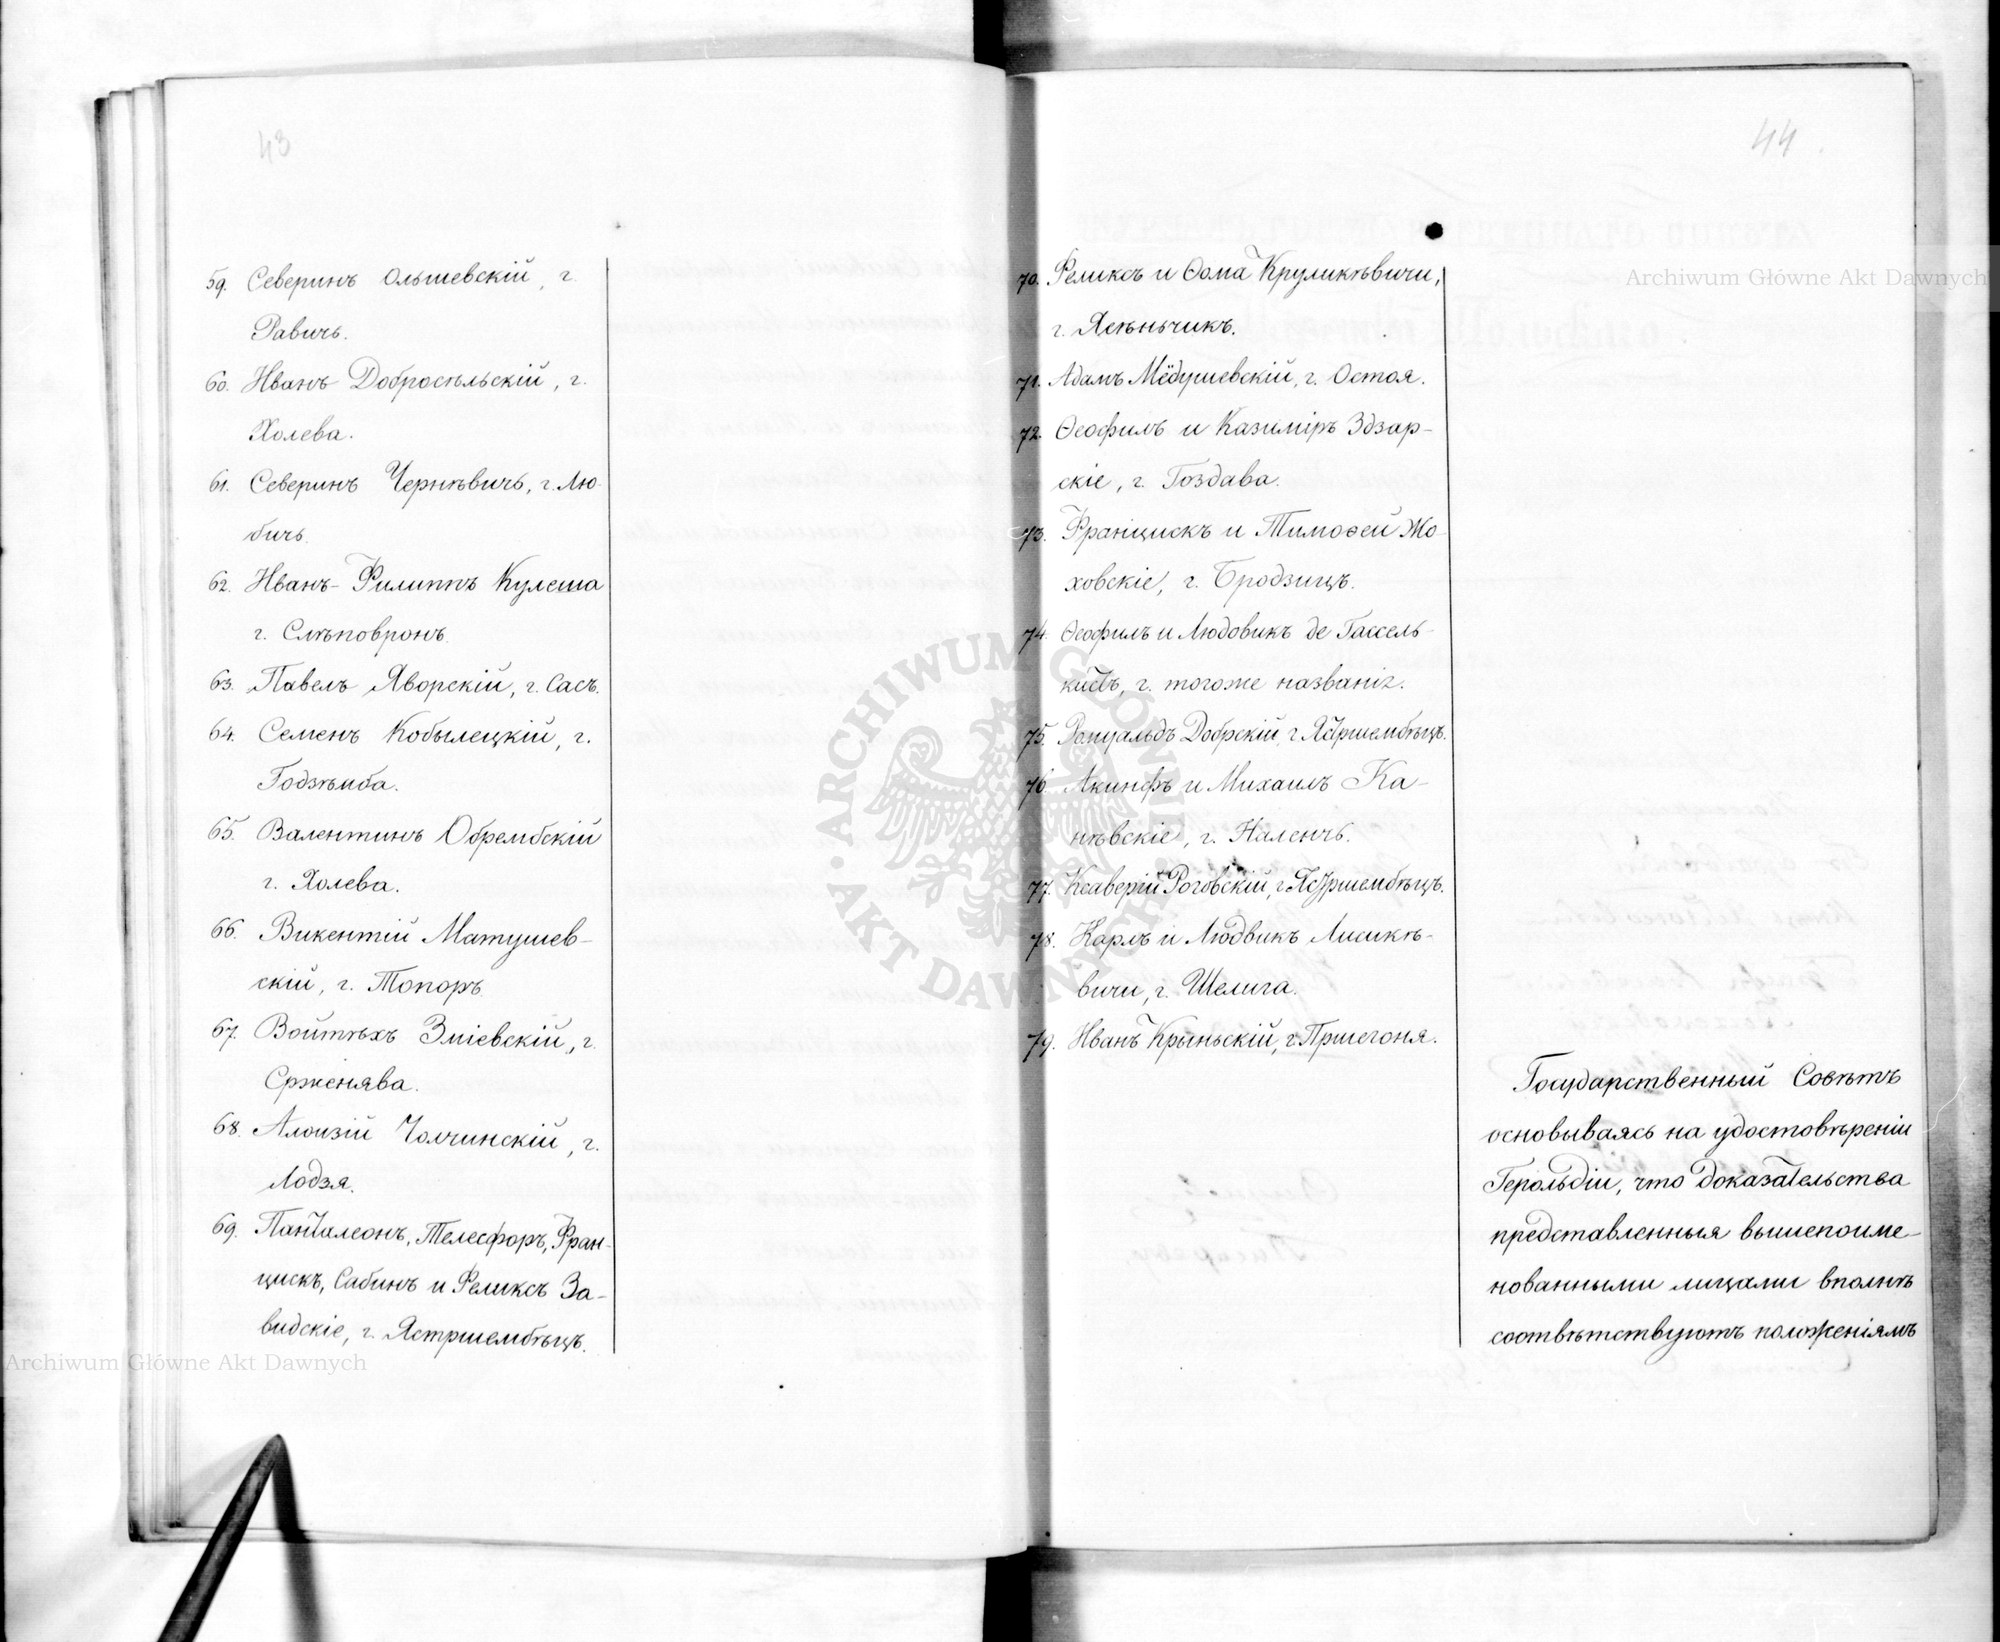 43
59. Северинъ Ольшевскій, г.
Равичъ.
60. Иванъ Добросѣльскій, г.
Холева.
61. Северинъ Чернѣвичъ, г. Лю-
бичъ.
62. Иванъ-Филиппъ Кулеша
г. Слѣповронъ.
63. Павелъ Яворскій, г. Сасъ.
64. Семенъ Кобылецкій, г.
Годзѣмба.
65. Валентинъ Обрембскій
г. Холева.
66. Викентій Матушев-
скій, г. Топоръ.
67. Войтѣхъ Зміевскій, г.
Срженява.
68. Алоизій Чолчинскій, г.
Лодзя.
69. Панталеонъ, Телесфоръ, Фран-
цискъ, Сабинъ и Феликсъ За-
видскіе, г. Ястршембѣцъ.
44
70. Феликсъ и Ѳома Круликѣвичи,
г. Ясѣньчикъ.
71. Адамъ Мёдушевскій, г. Остоя.
72. Ѳеофилъ и Казиміръ Здзар-
скіе, г. Гоздава.
73. Францискъ и Тимоѳей Жо-
ховскіе, г. Бродзицъ.
74. Ѳеофилъ и Людовикъ де Гассель-
г. тогоже названія.
75. Ромуальдъ Добрскій, г. Ястршембѣцъ.
76. Акинфъ и Михаилъ Ка-
нѣвскіе, г. Наленчъ.
77. Ксаверій Роговскій, г. Ястршембѣцъ.
78. Карлъ и Людвикъ Лисикѣ-
вичи, г. Шелига.
79. Иванъ Крыньскій, г. Пршегоня.
Государственный Совѣтъ
основываясь на удостовѣреніи
Герольдіи, что доказательства
представленныя вышепоиме-
нованными лицами вполнѣ
соотвѣтствуютъ положеніямъ
Archiwum Główne Akt Dawnych
Archiwum Główne Akt Dawnych
ARCHIWUM GŁÓWNE AKT DAWNYCH